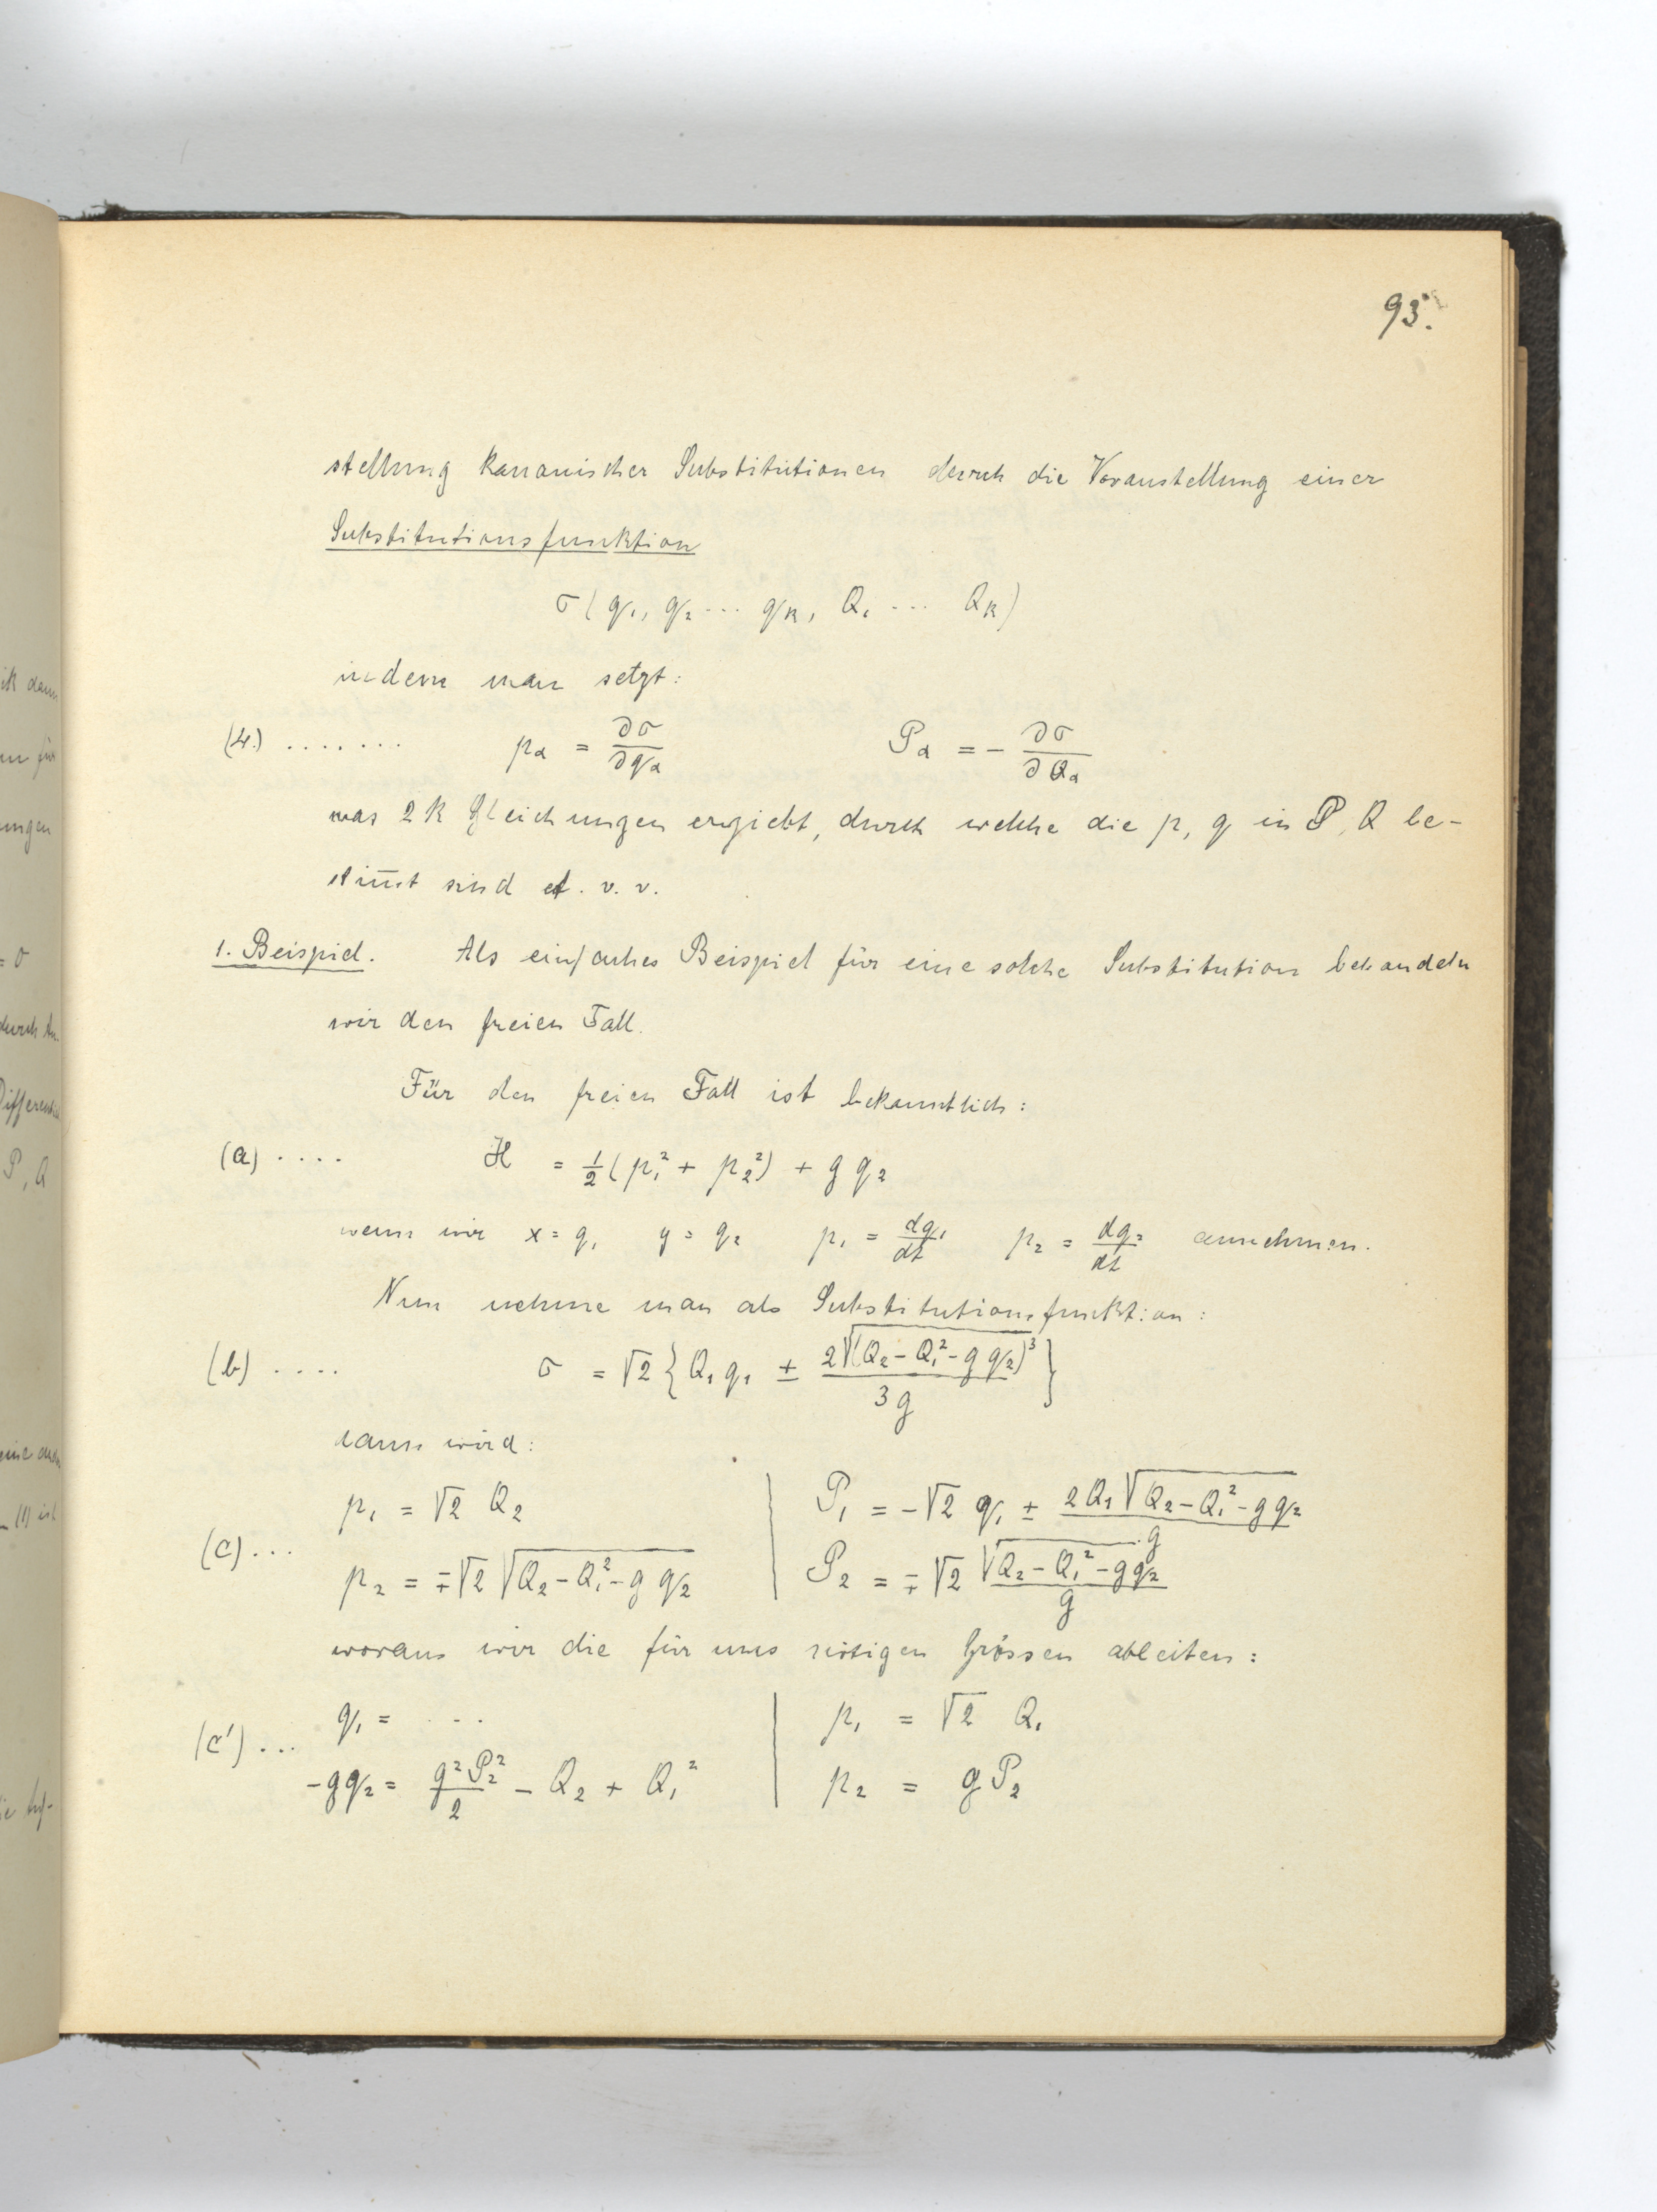 93.
stellung kanonischer Substitutionen durch die Voranstellung einer
Substitutionsfunktion
σ(q₁, q₂ ... q_k, Q₁ ... Q_k)
indem man setzt:
(4.) ....... p_α = ∂σ/∂q_α P_α = - ∂σ/∂Q_α
was 2k Gleichungen ergiebt, durch welche die p, q in P, Q be-
stim̅t sind et. v. v.
1. Beispiel. Als einfaches Beispiel für eine solche Substitution behandeln
wir den freien Fall.
Für den freien Fall ist bekanntlich:
(a) .... H = 1/2 (p₁² + p₂²) + g q₂
wenn wir x = q₁ y = q₂ p₁ = dq₁/dt p₂ = dq₂/dt annehmen.
Nun nehme man als Substitutionsfunktion:
(b) .... σ = √2 {Q₁ q₁ ± 2√(Q₂ - Q₁² - g q₂)³ / 3g}
dann wird:
p₁ = √2 Q₂ | P₁ = -√2 q₁ ± 2Q₁ √(Q₂ - Q₁² - g q₂) / g
(c) ... p₂ = ∓√2 √(Q₂ - Q₁² - g q₂) | P₂ = ∓ √2 √(Q₂ - Q₁² - g q₂) / g
woraus wir die für uns nötigen Grössen ableiten:
(c') ... q₁ = ... | p₁ = √2 Q₁
-g q₂ = g² P₂²/2 - Q₂ + Q₁² | p₂ = g P₂
ik dann
für
ungen
= 0
durch
Differential
P, Q
eine
(1) ist